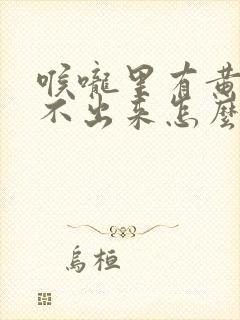 喉嚨里有黄
不出来怎麽
烏桓